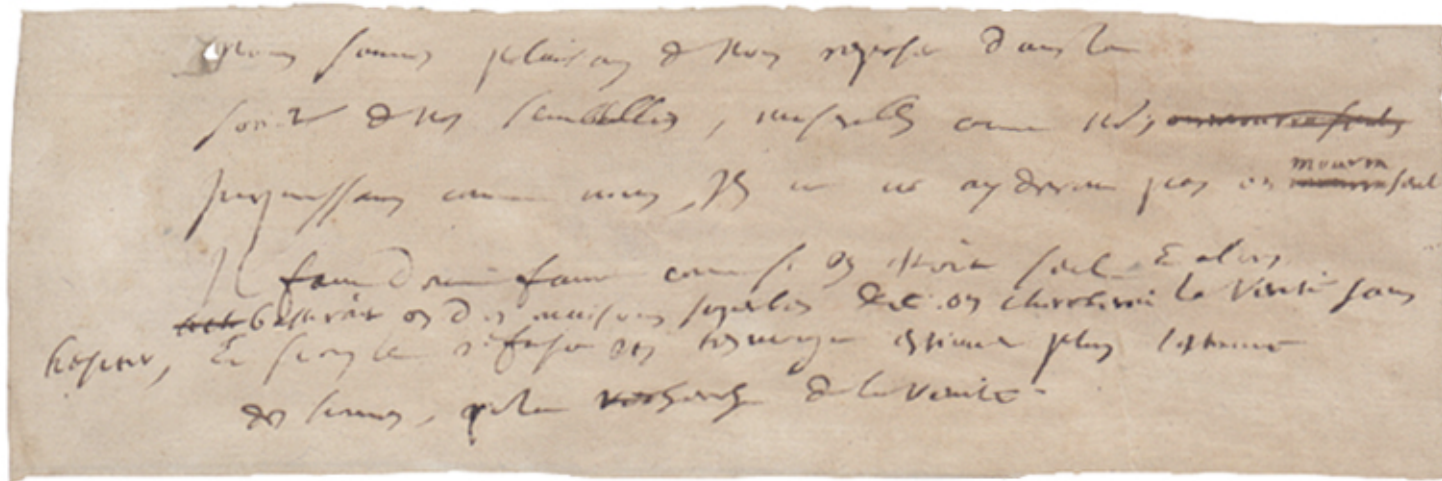 Nous sommes plaisans de nous reposer dans la
societé de nos semblables, miserables comme nous
impuissans comme nous, Ils ne ns ayderont pas on mourra seul
Il faut donc faire comme si on estoit seul Et alors
bastiroit on des maisons superbes &c. on chercheroit la verité sans
hesiter, Et si on le refuse on tesmoigne estimer plus l'estime
des hommes, que la recherche de la verité